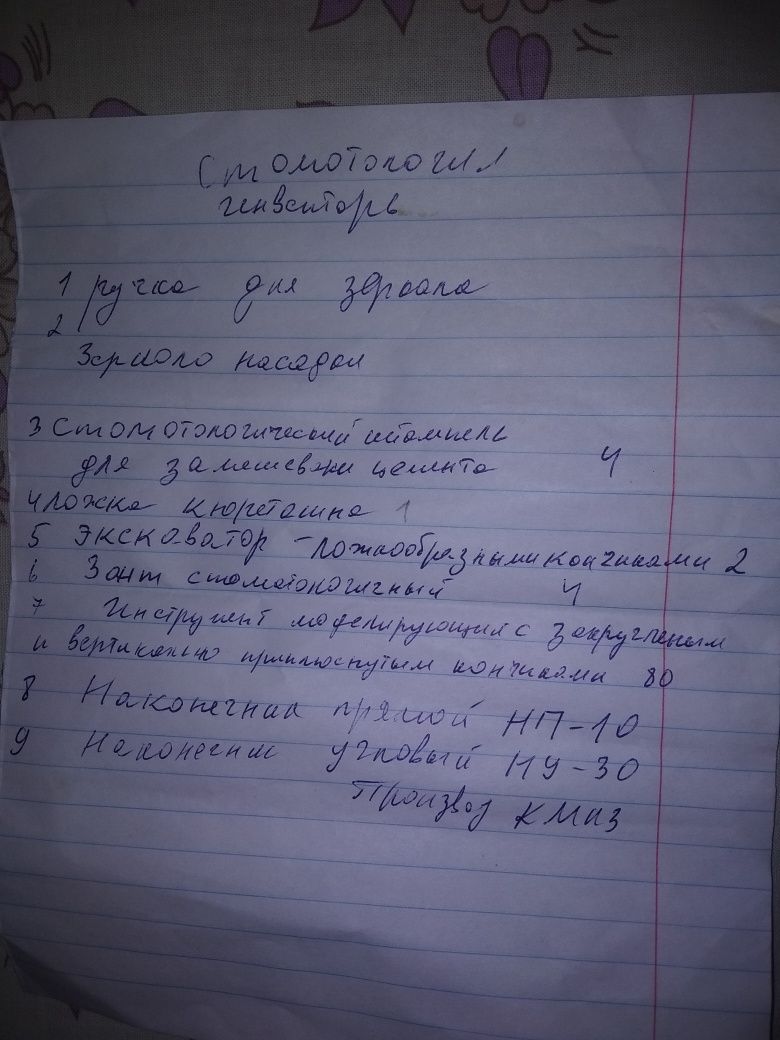 Стомотология
инвенторь
1 ручка для зеркала
2
Зеркало насадки
3 Стомотологический штомпель
для замешевания цемента 4
4 ложка кюреташна 1
5 Экскаватор - ложкообразными кончиками 2
6 Зонт стоматологичный 4
7 Инструмент моделирующий с закругленым
и вертикально приплюснутым кончиками 80
8 Наконечник прямой НП-10
9 Наконечник угловый НУ-30
Производ КМИЗ